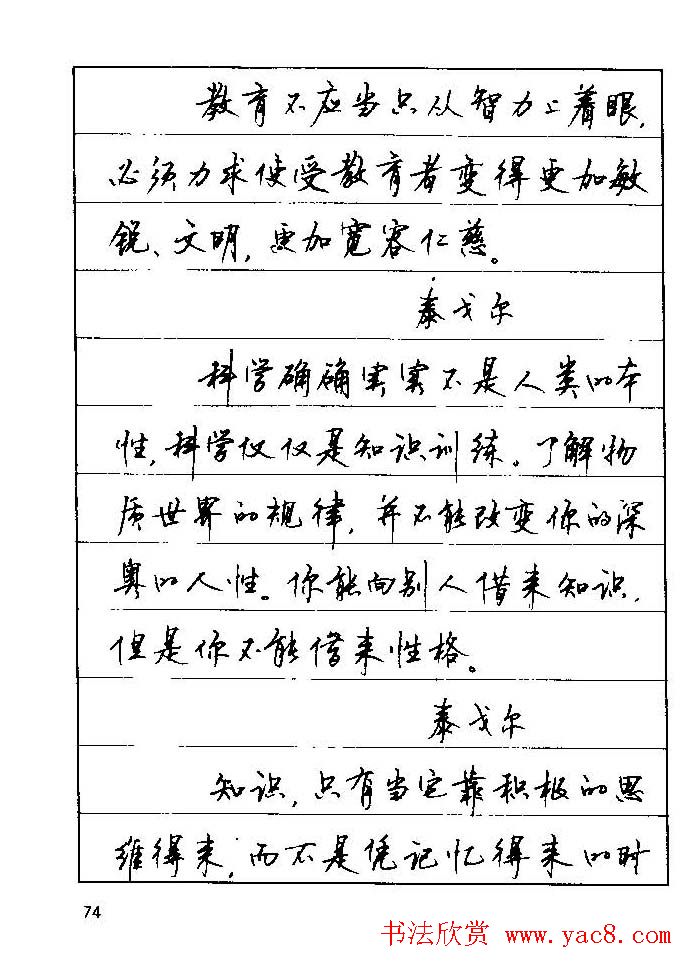 教育不应当只从智力上着眼，
必须力求使受教育者变得更加敏
锐、文明，更加宽容仁慈。
泰戈尔
科学确确实实不是人类的本
性，科学仅仅是知识训练。了解物
质世界的规律，并不能改变你的深
奥的人性。你能向别人借来知识，
但是你不能借来性格。
泰戈尔
知识，只有当它靠积极的思
维得来，而不是凭记忆得来的时
74
书法欣赏 www.yac8.com